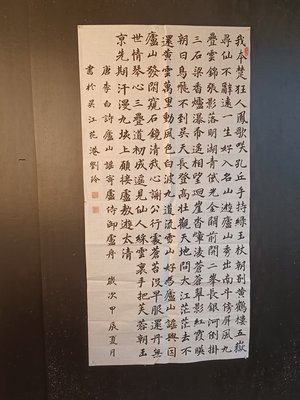 我本楚狂人鳳歌咲孔丘手持綠玉杖朝別黃鶴樓五嶽
尋仙不辭遠一生好入名山遊廬山秀出南斗傍屏風九
疊雲錦張影落明湖青黛光金闕前開二峯長銀河倒掛
三石梁香爐瀑布遙相望迴崖沓嶂凌蒼蒼翠影紅霞暎
朝日鳥飛不到吳天長登高壯觀天地間大江茫茫去不
還黃雲萬里動風色白波九道流雪山好為廬山謠興因
廬山發閒窺石鏡清我心謝公行處蒼苔沒早服還丹無
世情琴心三疊道初成遙見仙人綵雲裏手把芙蓉朝玉
京先期汗漫九垓上願接盧敖遊太清
唐李白詩廬山謠寄盧侍御虛舟 歲次甲辰夏月
書於吳江花港劉玲